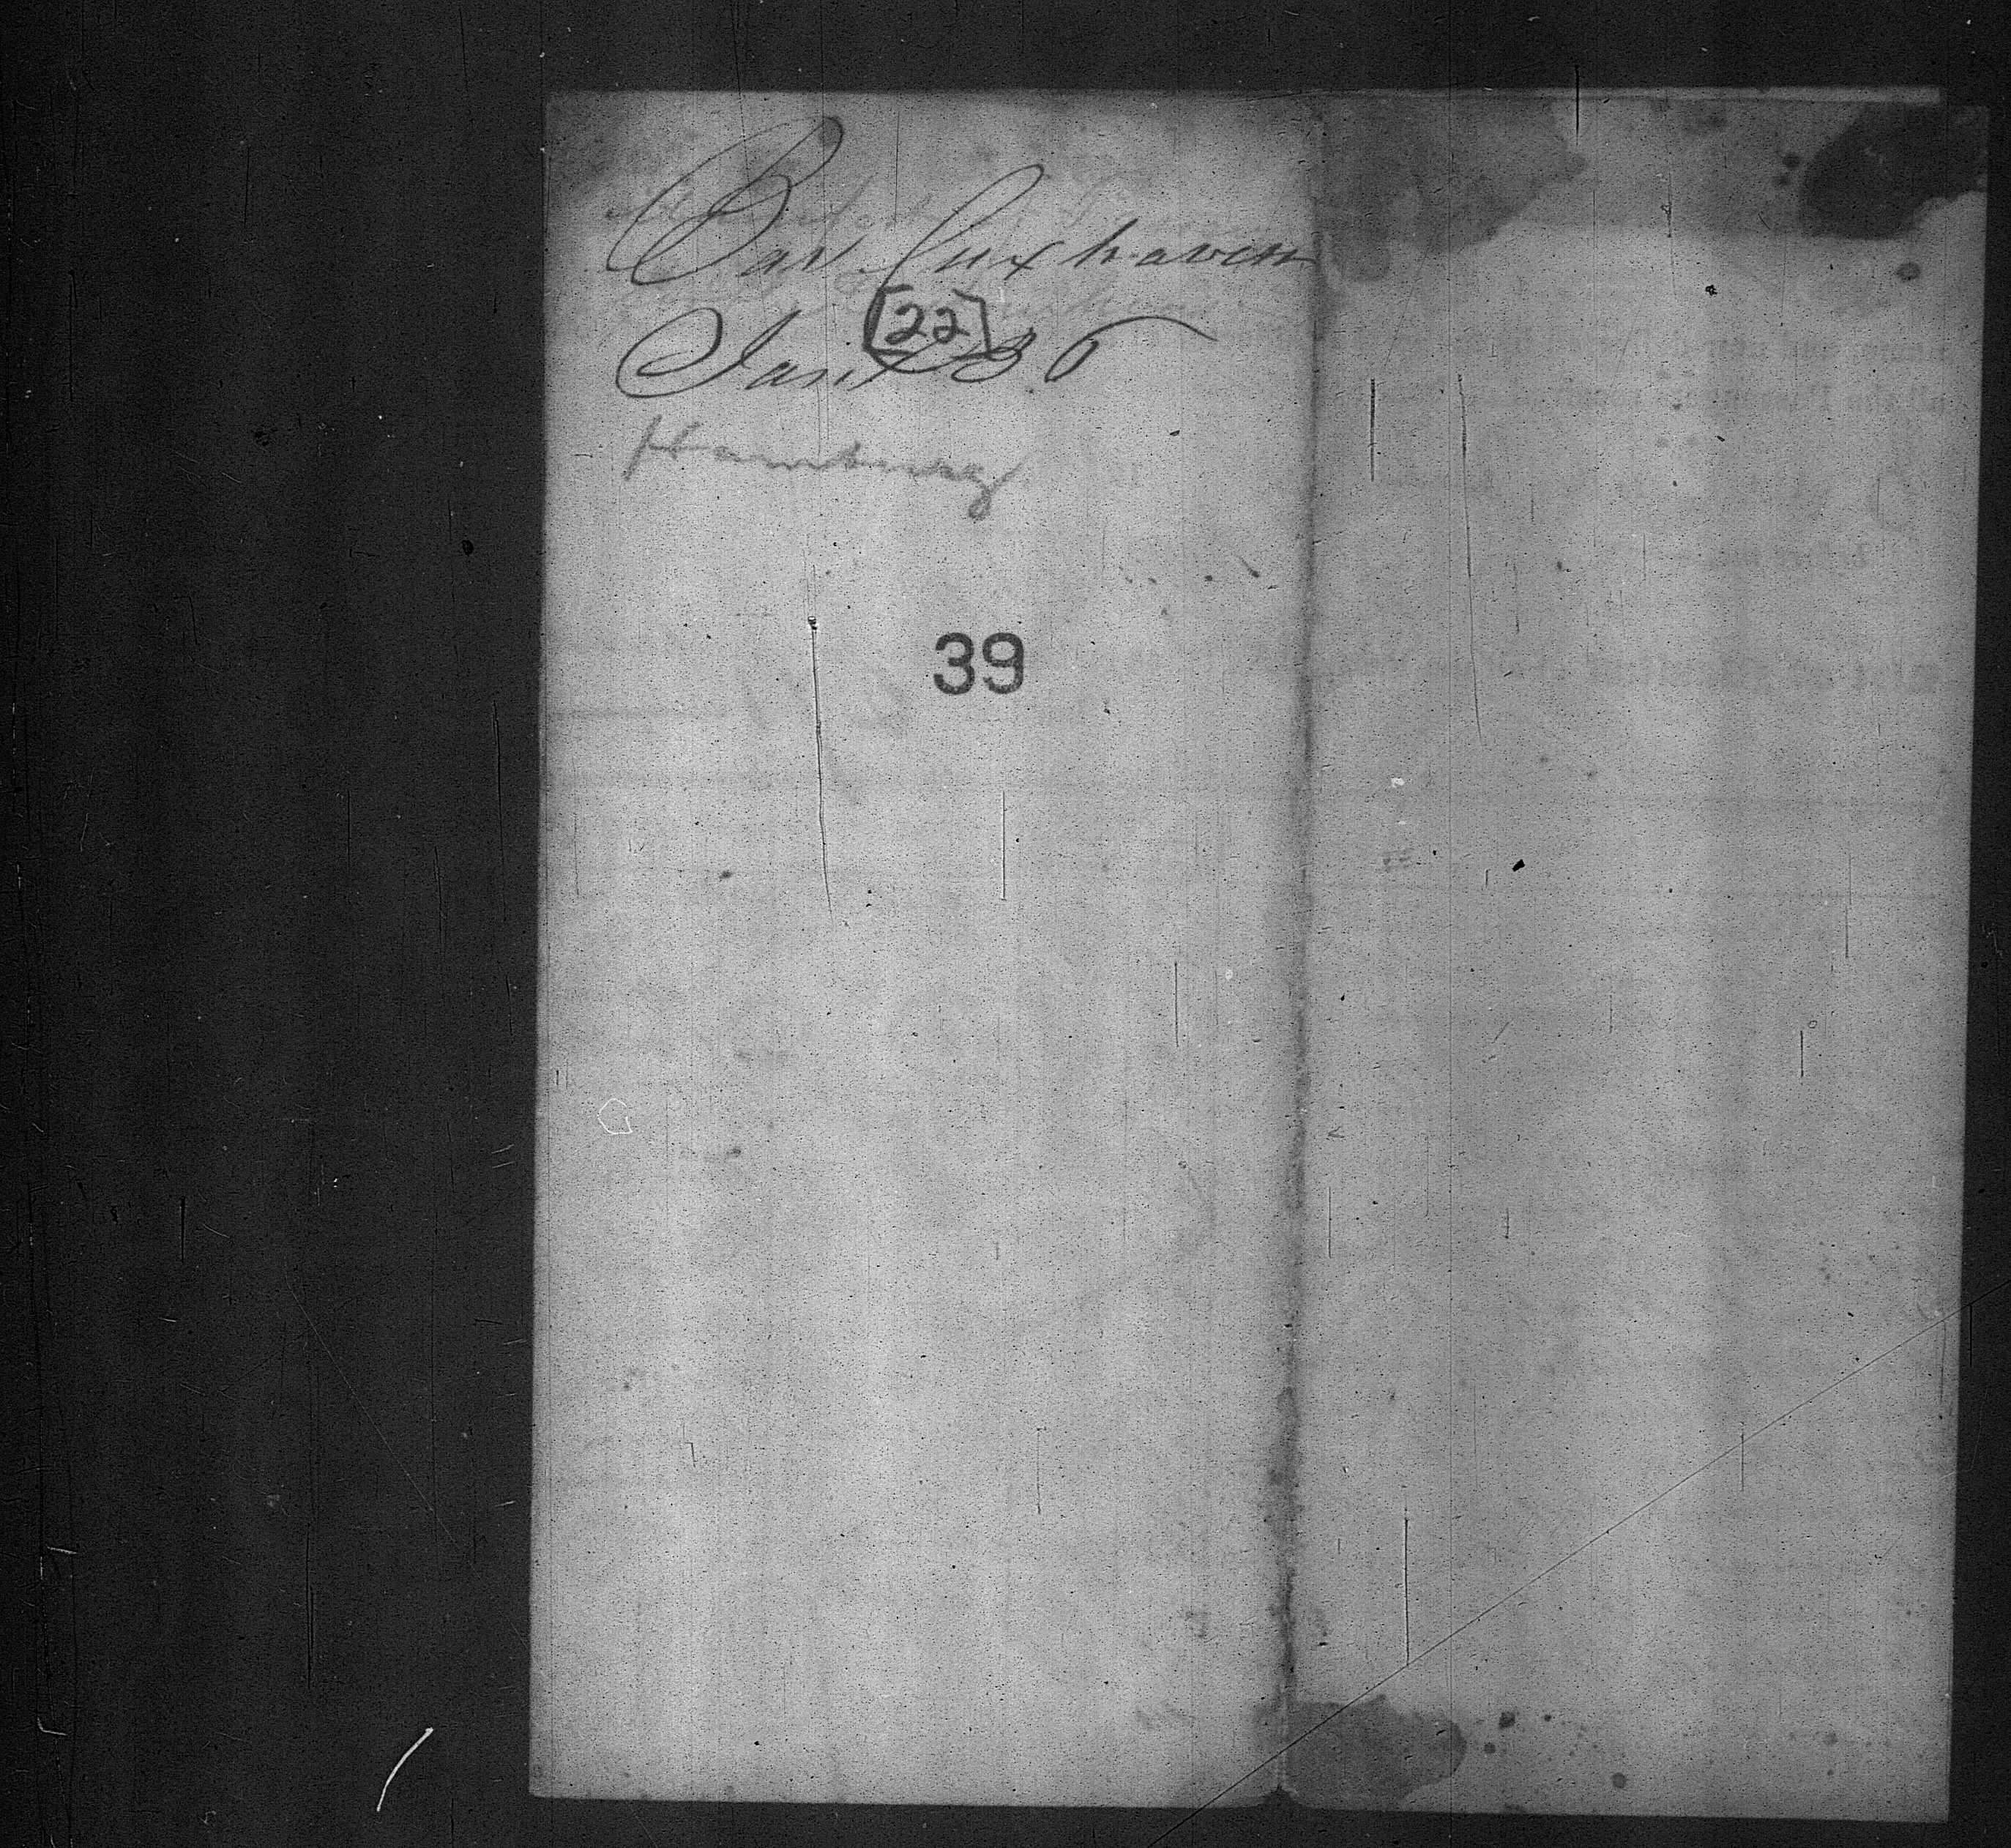 Bark Cuxhaven
[22]
Jany 30
Hamburg
39